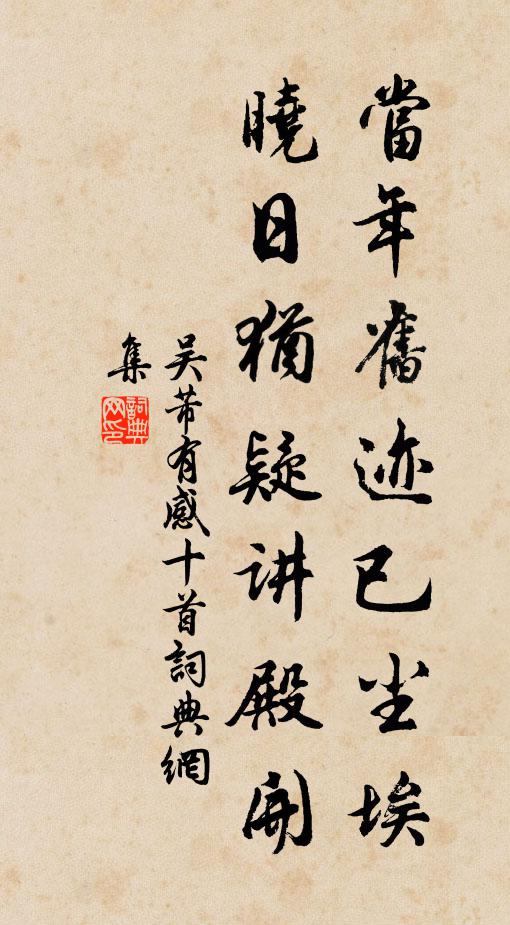 當年舊迹已尘埃
曉日猶疑讲殿開
吴芾有感十首詞典網
集
詞典
网印